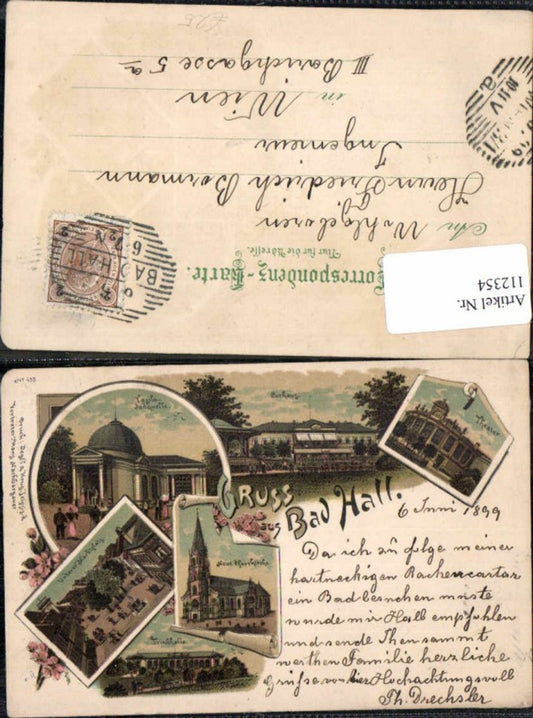 Correspondenz-Karte.
Nur für die Adresse.
An Wohlgeboren
Herrn Friedrich Bormann
Ingenieur
in Wien
III Barichgasse 5a
BAD HALL
Artikel Nr.
112354
Curhaus
Theater
Trinkhalle
GRUSS
aus Bad Hall.
6 Juni 1899
Da ich zu folge meiner
hartneckigen Rachencartar
ein Bad besuchen müste
wurde mir Hall empfohlen
und sende Ihen sammt
werthen Familie herzliche
Grüße von hier Hochachtungsvoll
Th. Drechsler